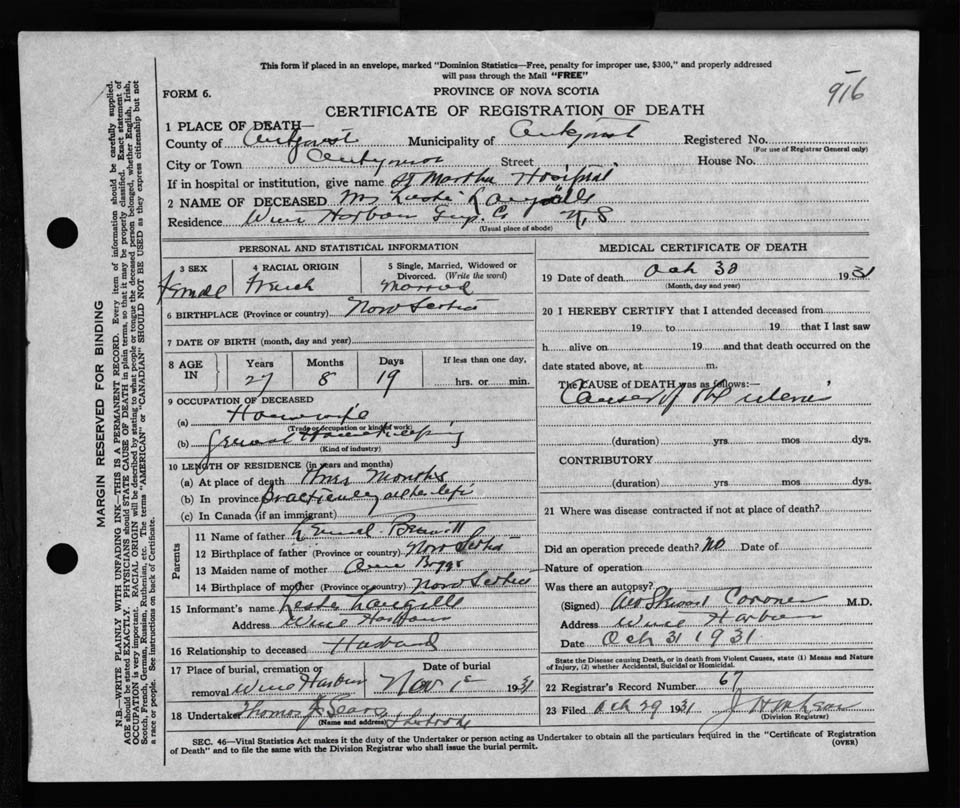 This form if placed in an envelope, marked "Dominion Statistics—Free, penalty for improper use, $300," and properly addressed
will pass through the Mail "FREE"
916
FORM 6.
PROVINCE OF NOVA SCOTIA
CERTIFICATE OF REGISTRATION OF DEATH
1 PLACE OF DEATH—
County of Antigonish Municipality of Antigonish Registered No.
(For use of Registrar General only)
City or Town Antigonish Street House No.
If in hospital or institution, give name St Martha Hospital
2 NAME OF DECEASED Mrs Leslie Langille
Residence Wine Harbour Guys. Co N, S
(Usual place of abode)
PERSONAL AND STATISTICAL INFORMATION
3 SEX
Female
4 RACIAL ORIGIN
French
5 Single, Married, Widowed or
Divorced. (Write the word)
Married
6 BIRTHPLACE (Province or country) Nova Scotia
7 DATE OF BIRTH (month, day and year)
8 AGE
IN
Years
27
Months
8
Days
19
If less than one day,
hrs. or min.
9 OCCUPATION OF DECEASED
(a) Housewife
(Trade or occupation or kind of work)
(b) General Housekeeping
(Kind of industry)
10 LENGTH OF RESIDENCE (in years and months)
(a) At place of death three Months
(b) In province Practically all her life
(c) In Canada (if an immigrant)
Parents
11 Name of father Lemuel
12 Birthplace of father (Province or country) Nova Scotia
13 Maiden name of mother Annie
14 Birthplace of mother (Province or country) Nova Scotia
15 Informant's name Leslie Langille
Address Wine Harbour
16 Relationship to deceased Husband
17 Place of burial, cremation or
removal Wine Harbour
Date of burial
Nov 1st 1931
18 Undertaker Thomas J. Sears Sherbrooke
(Name and address)
MEDICAL CERTIFICATE OF DEATH
19 Date of death Oct 30 1931
(Month, day and year)
20 I HEREBY CERTIFY that I attended deceased from
19 to 19 that I last saw
h alive on 19 and that death occurred on the
date stated above, at m.
The CAUSE OF DEATH was as follows:—
Cancer of
(duration) yrs mos dys.
CONTRIBUTORY
(duration) yrs mos dys.
21 Where was disease contracted if not at place of death?
Did an operation precede death? No Date of
Nature of operation
Was there an autopsy?
(Signed) Coroner M.D.
Address Wine Harbour
Date Oct 31 1931
State the Disease causing Death, or in death from Violent Causes, state (1) Means and Nature
of Injury, (2) whether Accidental, Suicidal or Homicidal.
22 Registrar's Record Number 67
23 Filed Oct 29 1931
(Division Registrar)
SEC. 46—Vital Statistics Act makes it the duty of the Undertaker or person acting as Undertaker to obtain all the particulars required in the "Certificate of Registration
of Death" and to file the same with the Division Registrar who shall issue the burial permit.
(OVER)
MARGIN RESERVED FOR BINDING
N.B.—WRITE PLAINLY WITH UNFADING INK—THIS IS A PERMANENT RECORD. Every item of information should be carefully supplied.
AGE should be stated EXACTLY. PHYSICIANS should STATE CAUSE OF DEATH in plain terms, so that it may be properly classified. Exact statement of
OCCUPATION is very important. RACIAL ORIGIN will be described by stating to what people or tongue the deceased person belonged, whether English, Irish,
Scotch, French, German, Russian, Ruthenian, etc. The terms "AMERICAN" or "CANADIAN" SHOULD NOT BE USED as they express citizenship but not
a race or people. See instructions on back of Certificate.